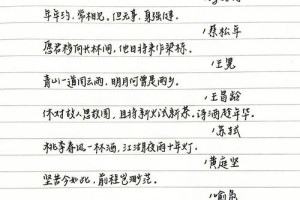 年年约，常相见。但无事，身强健。
/蔡松年
愿君移向长林间，他日将来作梁栋。
/王冕
青山一道同云雨，明月何曾是两乡。
/王昌龄
休对故人思故国，且将新火试新茶。诗酒趁年华。
/苏轼
桃李春风一杯酒，江湖夜雨十年灯。
/黄庭坚
坚
/喻岛